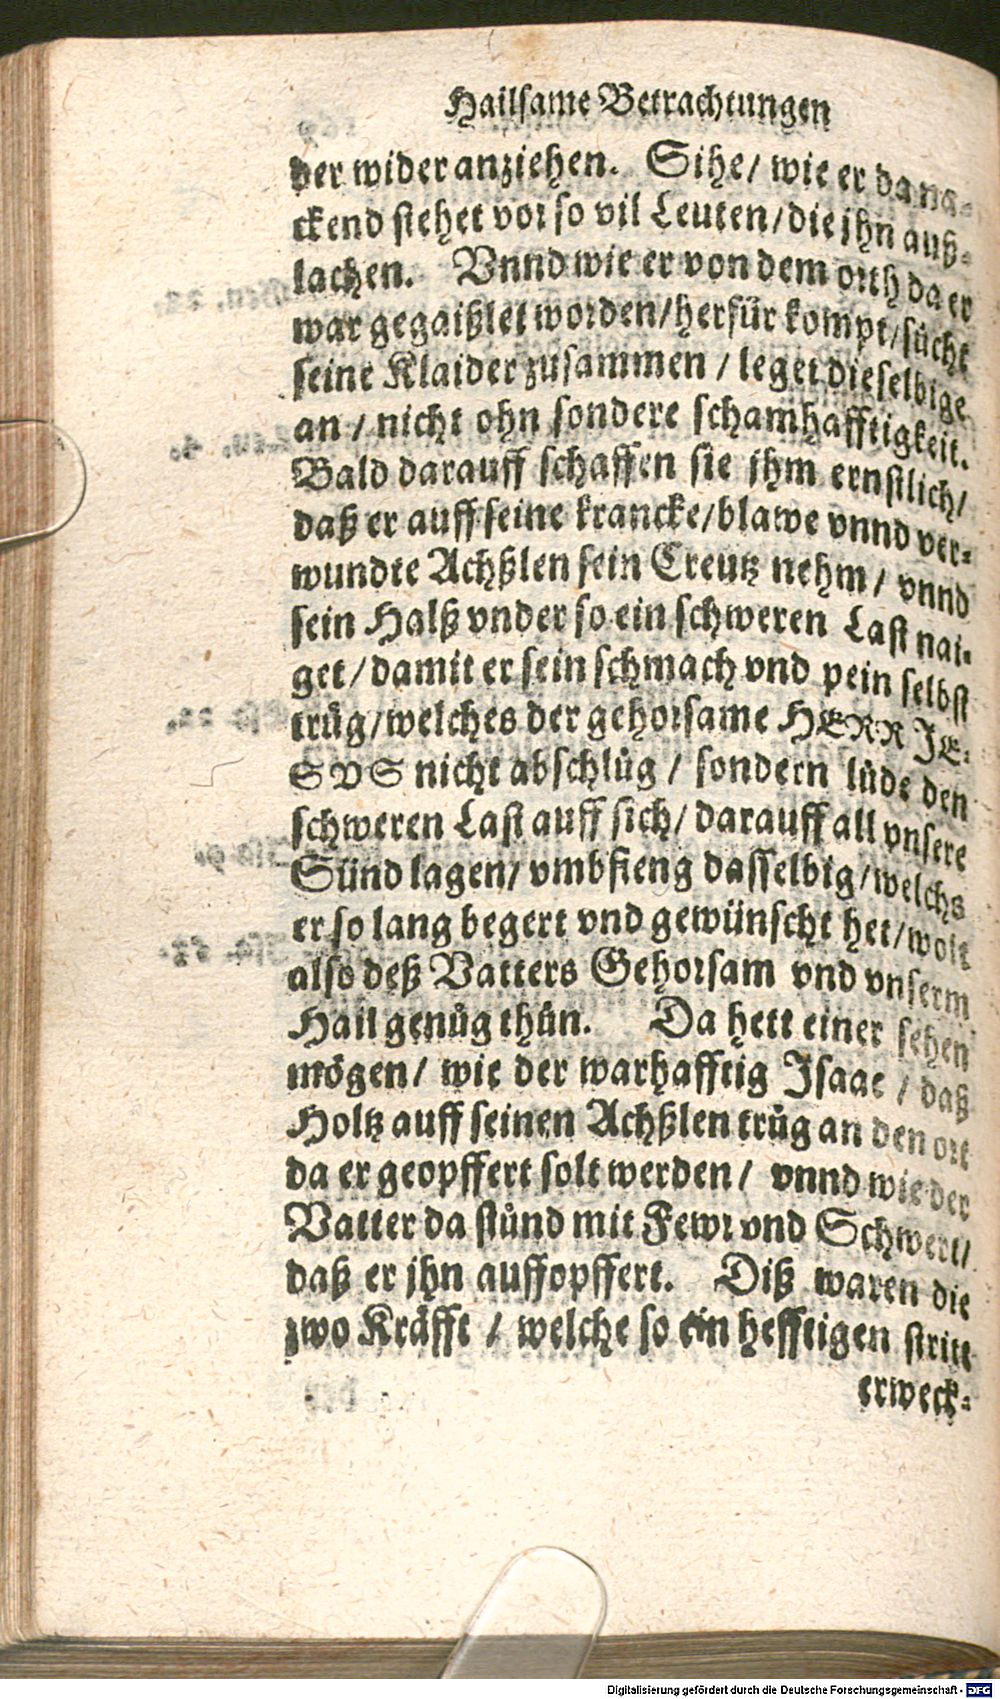 Hailsame Betrachtungen
der wider anziehen. Sihe/ wie er da na-
ckend stehet vor so vil Leuten/die jhn auß-
lachen. Vnnd wie er von dem orth da er
war gegaißlet worden/herfür kompt/sůcht
seine Klaider zusammen / leget dieselbige
an / nicht ohn sondere schamhafftigkeit.
Bald darauff schaffen sie jhm ernstlich/
daß er auff seine krancke/blawe vnnd ver-
wundte Achßlen sein Creutz nehm / vnnd
sein Halß vnder so ein schweren Last nai-
get/damit er sein schmach vnd pein selbst
trůg/welches der gehorsame HERR JE-
SVS nicht abschlůg / sondern lůde den
schweren Last auff sich/ darauff all vnsere
Sünd lagen/ vmbfieng dasselbig/welchs
er so lang begert vnd gewünscht het/wolt
also deß Vatters Gehorsam vnd vnserm
Hail genůg thůn. Da hett einer sehen
mögen/ wie der warhafftig Isaac / daß
Holtz auff seinen Achßlen trůg an den ort
da er geopffert solt werden/ vnnd wie der
Vatter da stůnd mit Fewr vnd Schwert/
daß er jhn auffopffert. Diß waren die
zwo Kräfft / welche so ein hefftigen stritt
erweck-
Digitalisierung gefördert durch die Deutsche Forschungsgemeinschaft - DFG